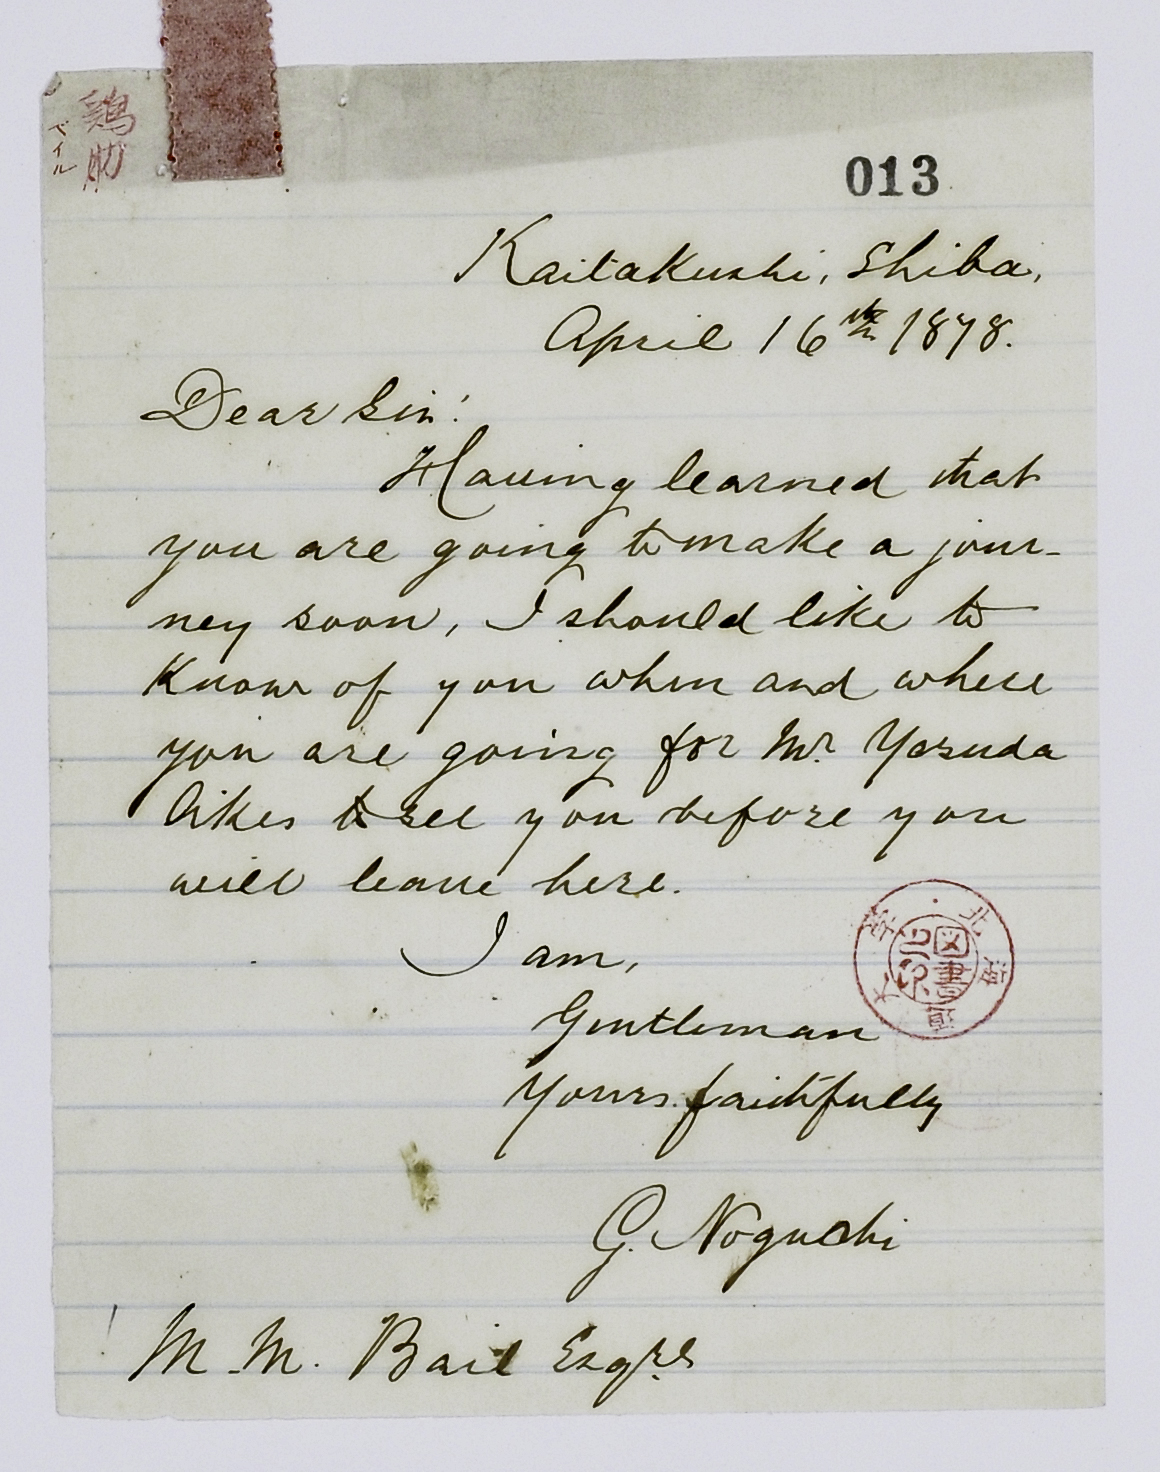 鶏肋
ベイル
013
Kaitakushi, Shiba,
April 16th 1878.
Dear Sir!
Having learned that
you are going to make a jour-
ney soon, I should like to
Know of you when and where
you are going for Mr. Yasuda
likes to see you before you
will leave here.
I am,
Gentleman
Yours faithfully
G. Noguchi
M. M. Bail Esqre
北海道大學
図書